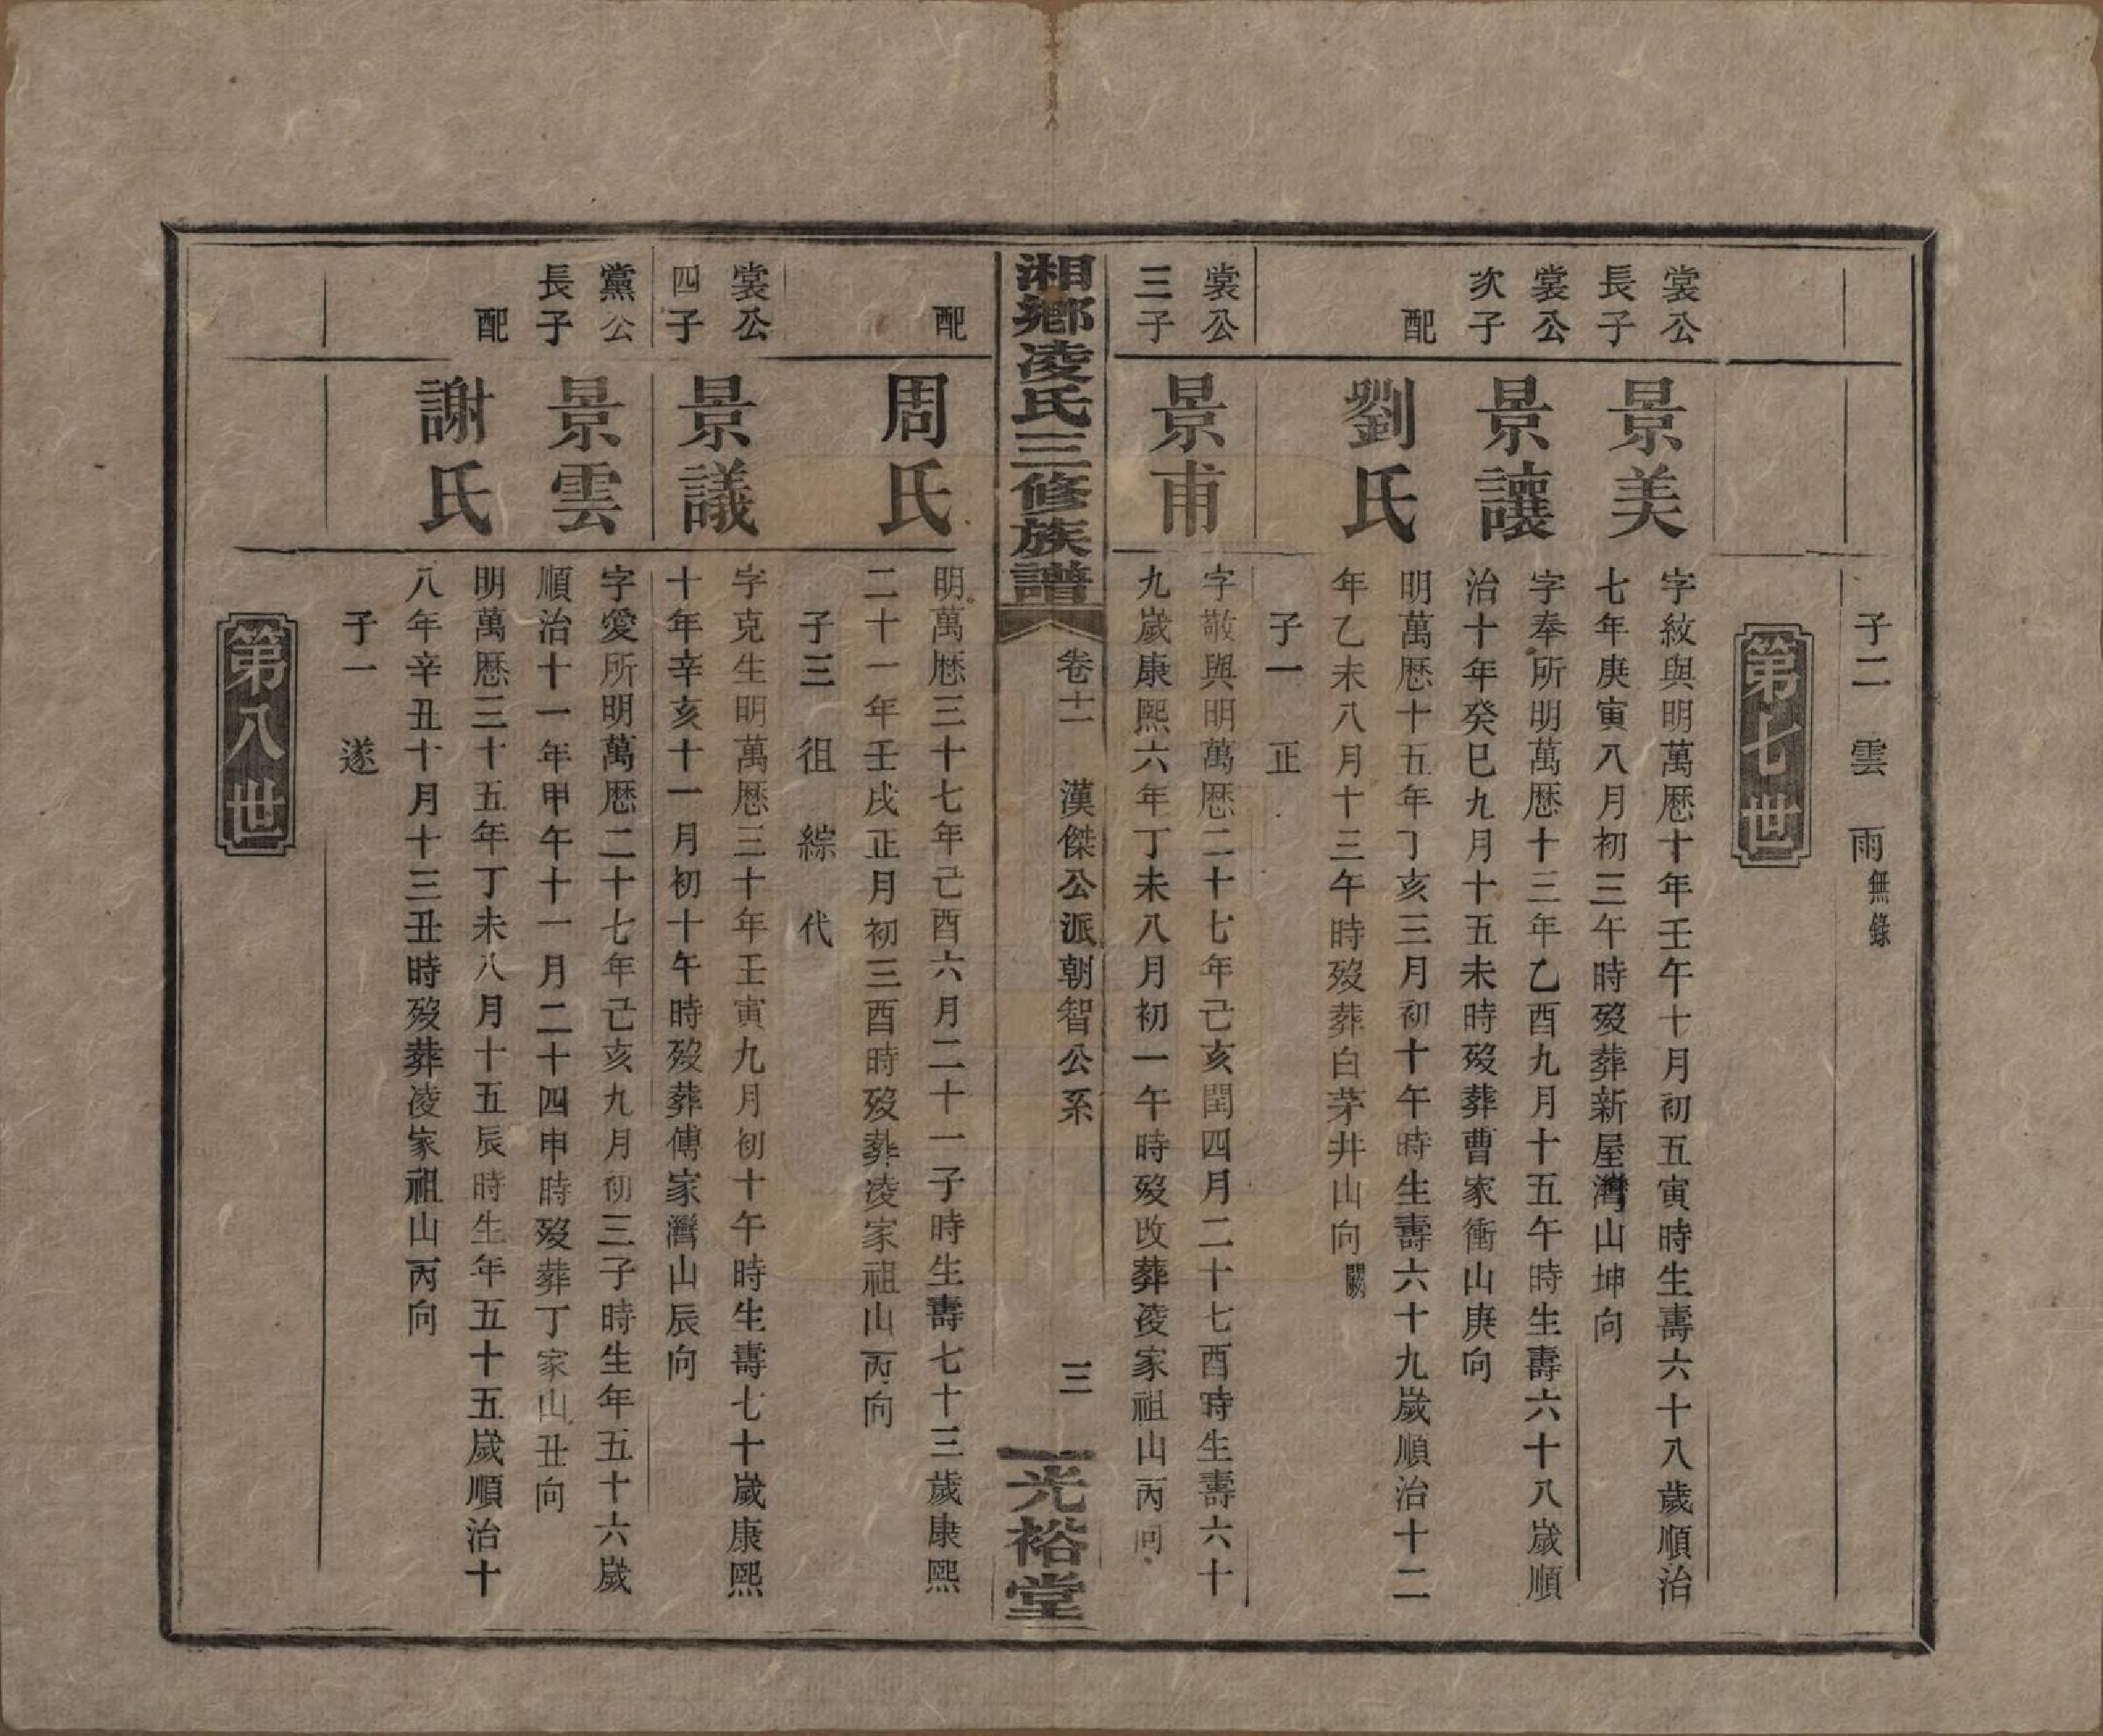 子二 雲 雨無錄
第七世
裳公
長子
景美
字紋與明萬歷十年壬午十月初五寅時生壽六十八歲順治
七年庚寅八月初三午時歿葬新屋灣山坤向
裳公
次子
景讓
字奉所明萬歷十三年乙酉九月十五午時生壽六十八歲順
治十年癸巳九月十五未時歿葬曹家衝山庚向
配
劉氏
明萬歷十五年丁亥三月初十午時生壽六十九歲順治十二
年乙未八月十三午時歿葬白茅井山向闕
子一 正
裳公
三子
景甫
字敬與明萬歷二十七年己亥閏四月二十七酉時生壽六十
九歲康熙六年丁未八月初一午時歿改葬凌家祖山丙向
湘鄉凌氏三修族譜
卷十一 漢傑公派朝智公系
三
光裕堂
配
周氏
明萬歷三十七年己酉六月二十一子時生壽七十三歲康熙
二十一年壬戌正月初三酉時歿葬凌家祖山丙向
子三 徂 綜 代
裳公
四子
景議
字克生明萬歷三十年壬寅九月初十午時生壽七十歲康熙
十年辛亥十一月初十午時歿葬傅家灣山辰向
黨公
長子
景雲
字愛所明萬歷二十七年己亥九月初三子時生年五十六歲
順治十一年甲午十一月二十四申時歿葬丁家山丑向
配
謝氏
明萬歷三十五年丁未八月十五辰時生年五十五歲順治十
八年辛丑十月十三丑時歿葬凌家祖山丙向
子一 遂
第八世